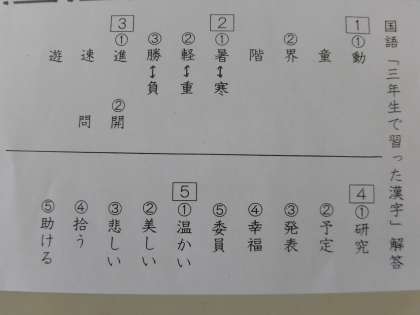 国語「三年生で習った漢字」解答
1
①動
童
②界
階
2
①暑↔寒
②軽↔重
③勝↔負
3
①進 ②開
速 問
遊
4
①研究
②予定
③発表
④幸福
⑤委員
5
①温かい
②美しい
③悲しい
④拾う
⑤助ける